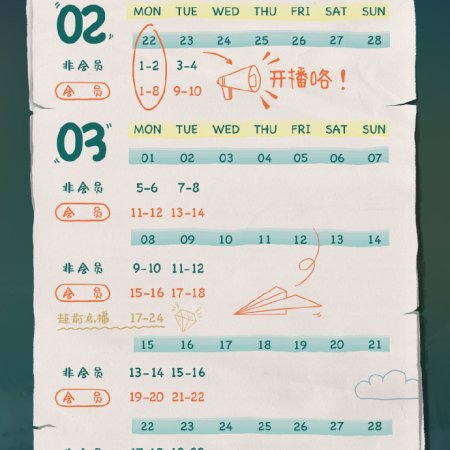 02 MON TUE WED THU FRI SAT SUN
22 23 24 25 26 27 28
非会员 1-2 3-4
会 员 1-8 9-10
开播咯！
03 MON TUE WED THU FRI SAT SUN
01 02 03 04 05 06 07
非会员 5-6 7-8
会 员 11-12 13-14
08 09 10 11 12 13 14
非会员 9-10 11-12
会 员 15-16 17-18
超前点播 17-24
15 16 17 18 19 20 21
非会员 13-14 15-16
会 员 19-20 21-22
22 23 24 25 26 27 28